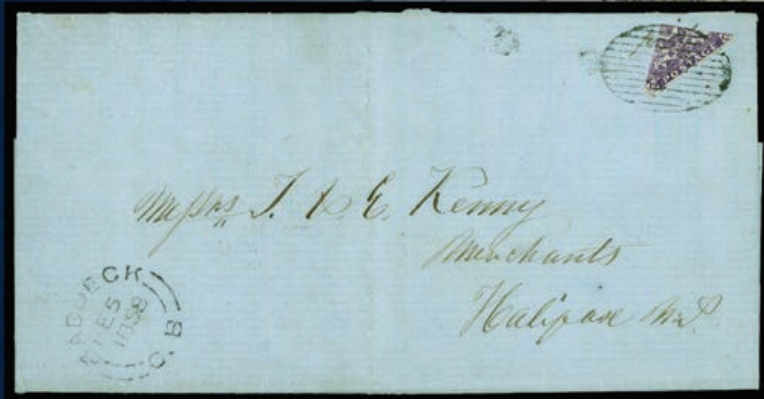 POSTAGE
Messrs T. & E. Kenny
Merchants
Halifax N.S.
BADDECK
1858
C.B